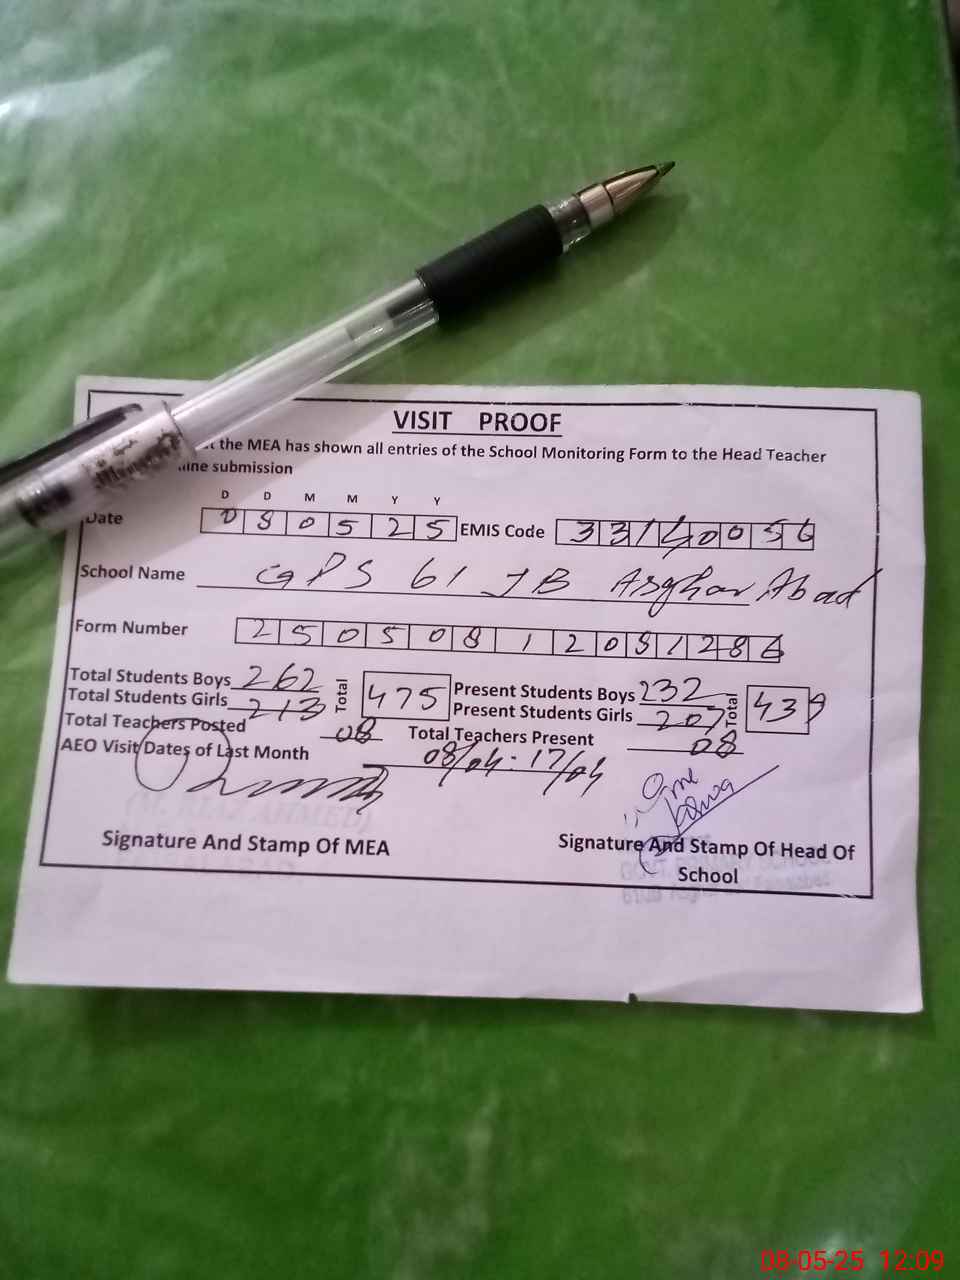 VISIT PROOF
the MEA has shown all entries of the School Monitoring Form to the Head Teacher
submission
D D M M Y Y
Date 080525 EMIS Code 33140056
School Name GPS 61 JB Asghar Abad
Form Number 25050812081286
Total Students Boys 262 Total 475 Present Students Boys 232 Total 439
Total Students Girls 213 Present Students Girls 207
Total Teachers Posted 08 Total Teachers Present 08
AEO Visit Dates of Last Month 08/04 - 17/04
(M. RIAZ AHMED)
Signature And Stamp Of MEA Signature And Stamp Of Head Of School
GOVT. PRIMARY SCHOOL
08-05-25 12:09